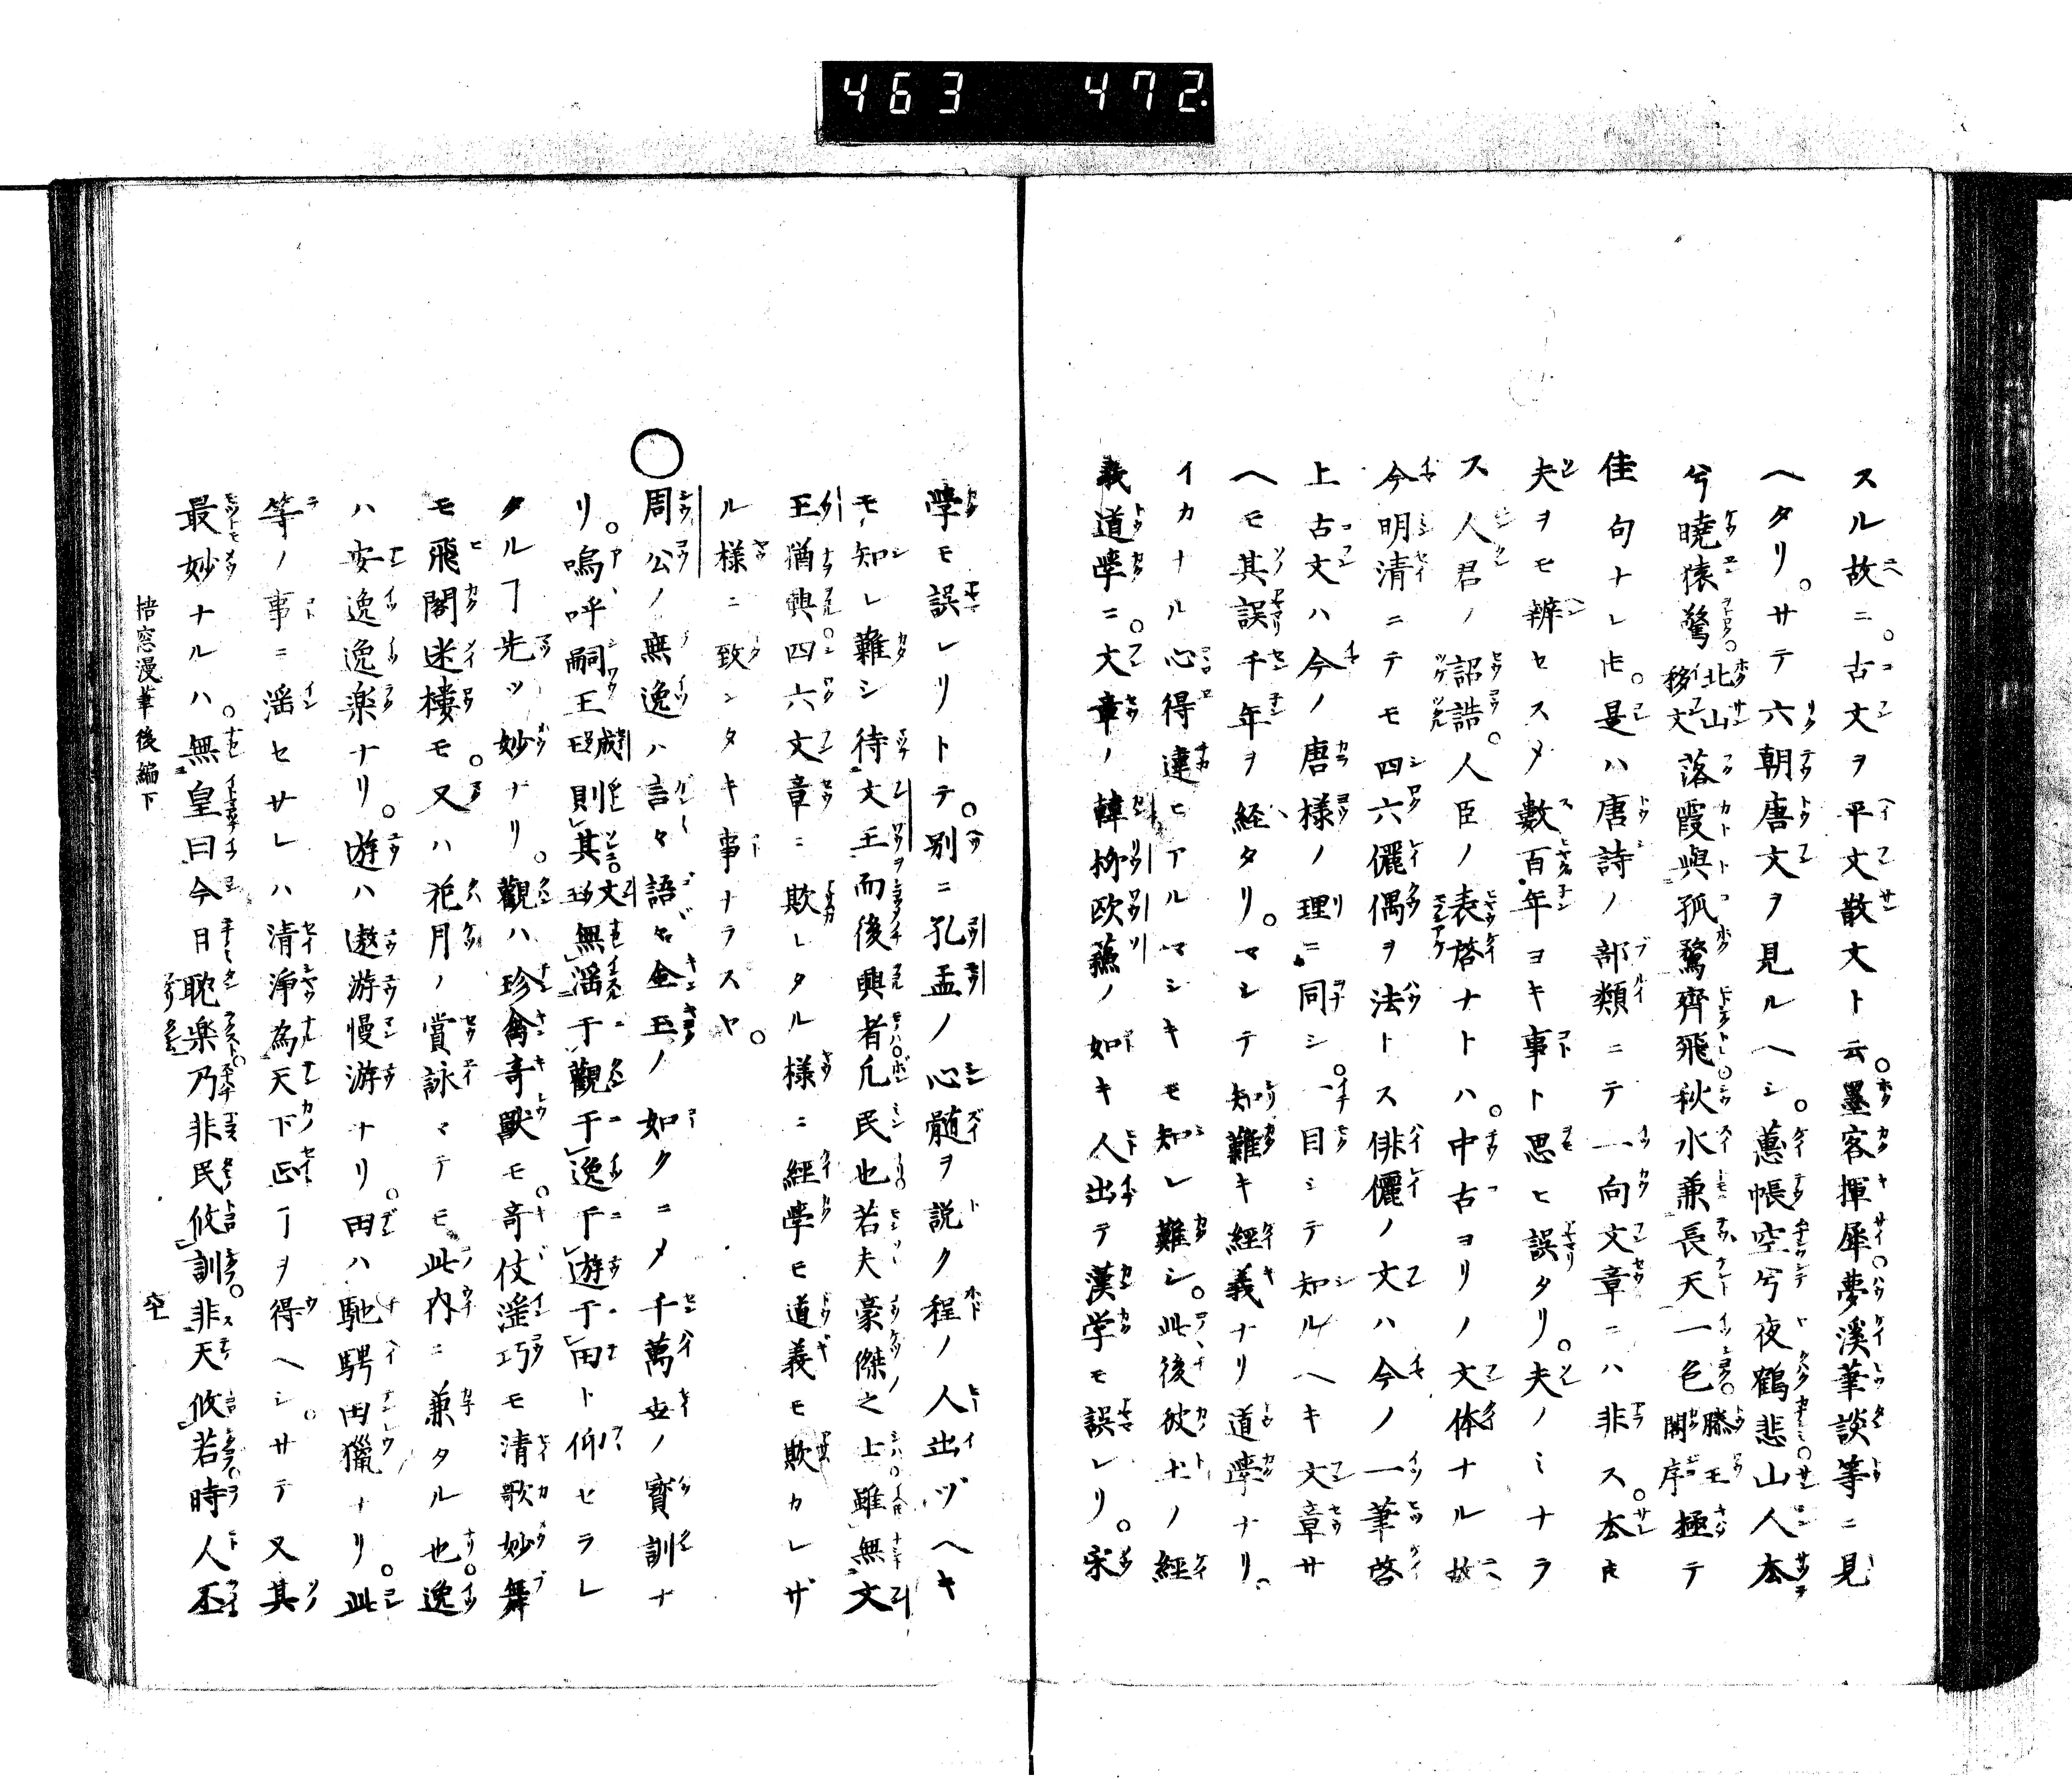 463 472
スル故ニ。古文ヲ平文散文ト云。墨客揮犀。夢溪筆談等ニ見
ヘタリ。サテ六朝唐文ヲ見ルヘシ。蕙帳空兮夜鶴悲山人去
兮曉猿驚。北山移文落霞與孤鶩齊飛秋水兼長天一色。滕王閣序極テ
佳句ナレ𪜈。是ハ唐詩ノ部類ニテ一向文章ニハ非ス。去𪜈
夫ヲモ辨セスメ數百年ヨキ事ト思ヒ誤タリ。夫ノミナラ
ス人君ノ詔誥。人臣ノ表啓ナトハ。中古ヨリノ文体ナル故
今明清ニテモ四六儷偶ヲ法トス俳儷ノ文ハ今ノ一筆啓
上古文ハ今ノ唐様ノ理ニ同シ。一目ミテ知ルヘキ文章サ
ヘモ其誤千年ヲ経タリ。マシテ知難キ經義ナリ道學ナリ。
イカナル心得違ヒアルマシキモ知レ難シ。此後彼土ノ經
義道學ニ。文章ノ韓柳欧蘓ノ如キ人出テ漢学モ誤レリ。宋
學モ誤レリトテ。別ニ孔孟ノ心髄ヲ説ク程ノ人出ヅヘキ
モ知レ難シ待文王而後興者凡民也若夫豪傑之士雖無文
王猶興四六文章ニ欺レタル様ニ經學モ道義モ欺カレザ
ル様ニ致ンタキ事ナラスヤ。
○周公ノ無逸ハ言々語々金玉ノ如クニメ千萬世ノ寳訓ナ
リ。嗚呼嗣王成王則其文王無淫于觀于逸于遊于田ト仰セラレ
タルヿ先ッ妙ナリ。觀ハ珍禽竒獸モ。竒伎淫巧モ清歌妙舞
モ飛閣迷樓モ。又ハ花月ノ賞詠マテモ此内ニ兼タル也。逸
ハ安逸逸楽ナリ。遊ハ遨游慢游ナリ。田ハ馳騁田獵ナリ。此
等ノ事ニ淫セサレハ清淨為天下正ヿヲ得ヘシ。サテ又其
最妙ナルハ。無皇曰今日耽楽乃非民攸訓非天攸若時人丕
梧窓漫筆後編下